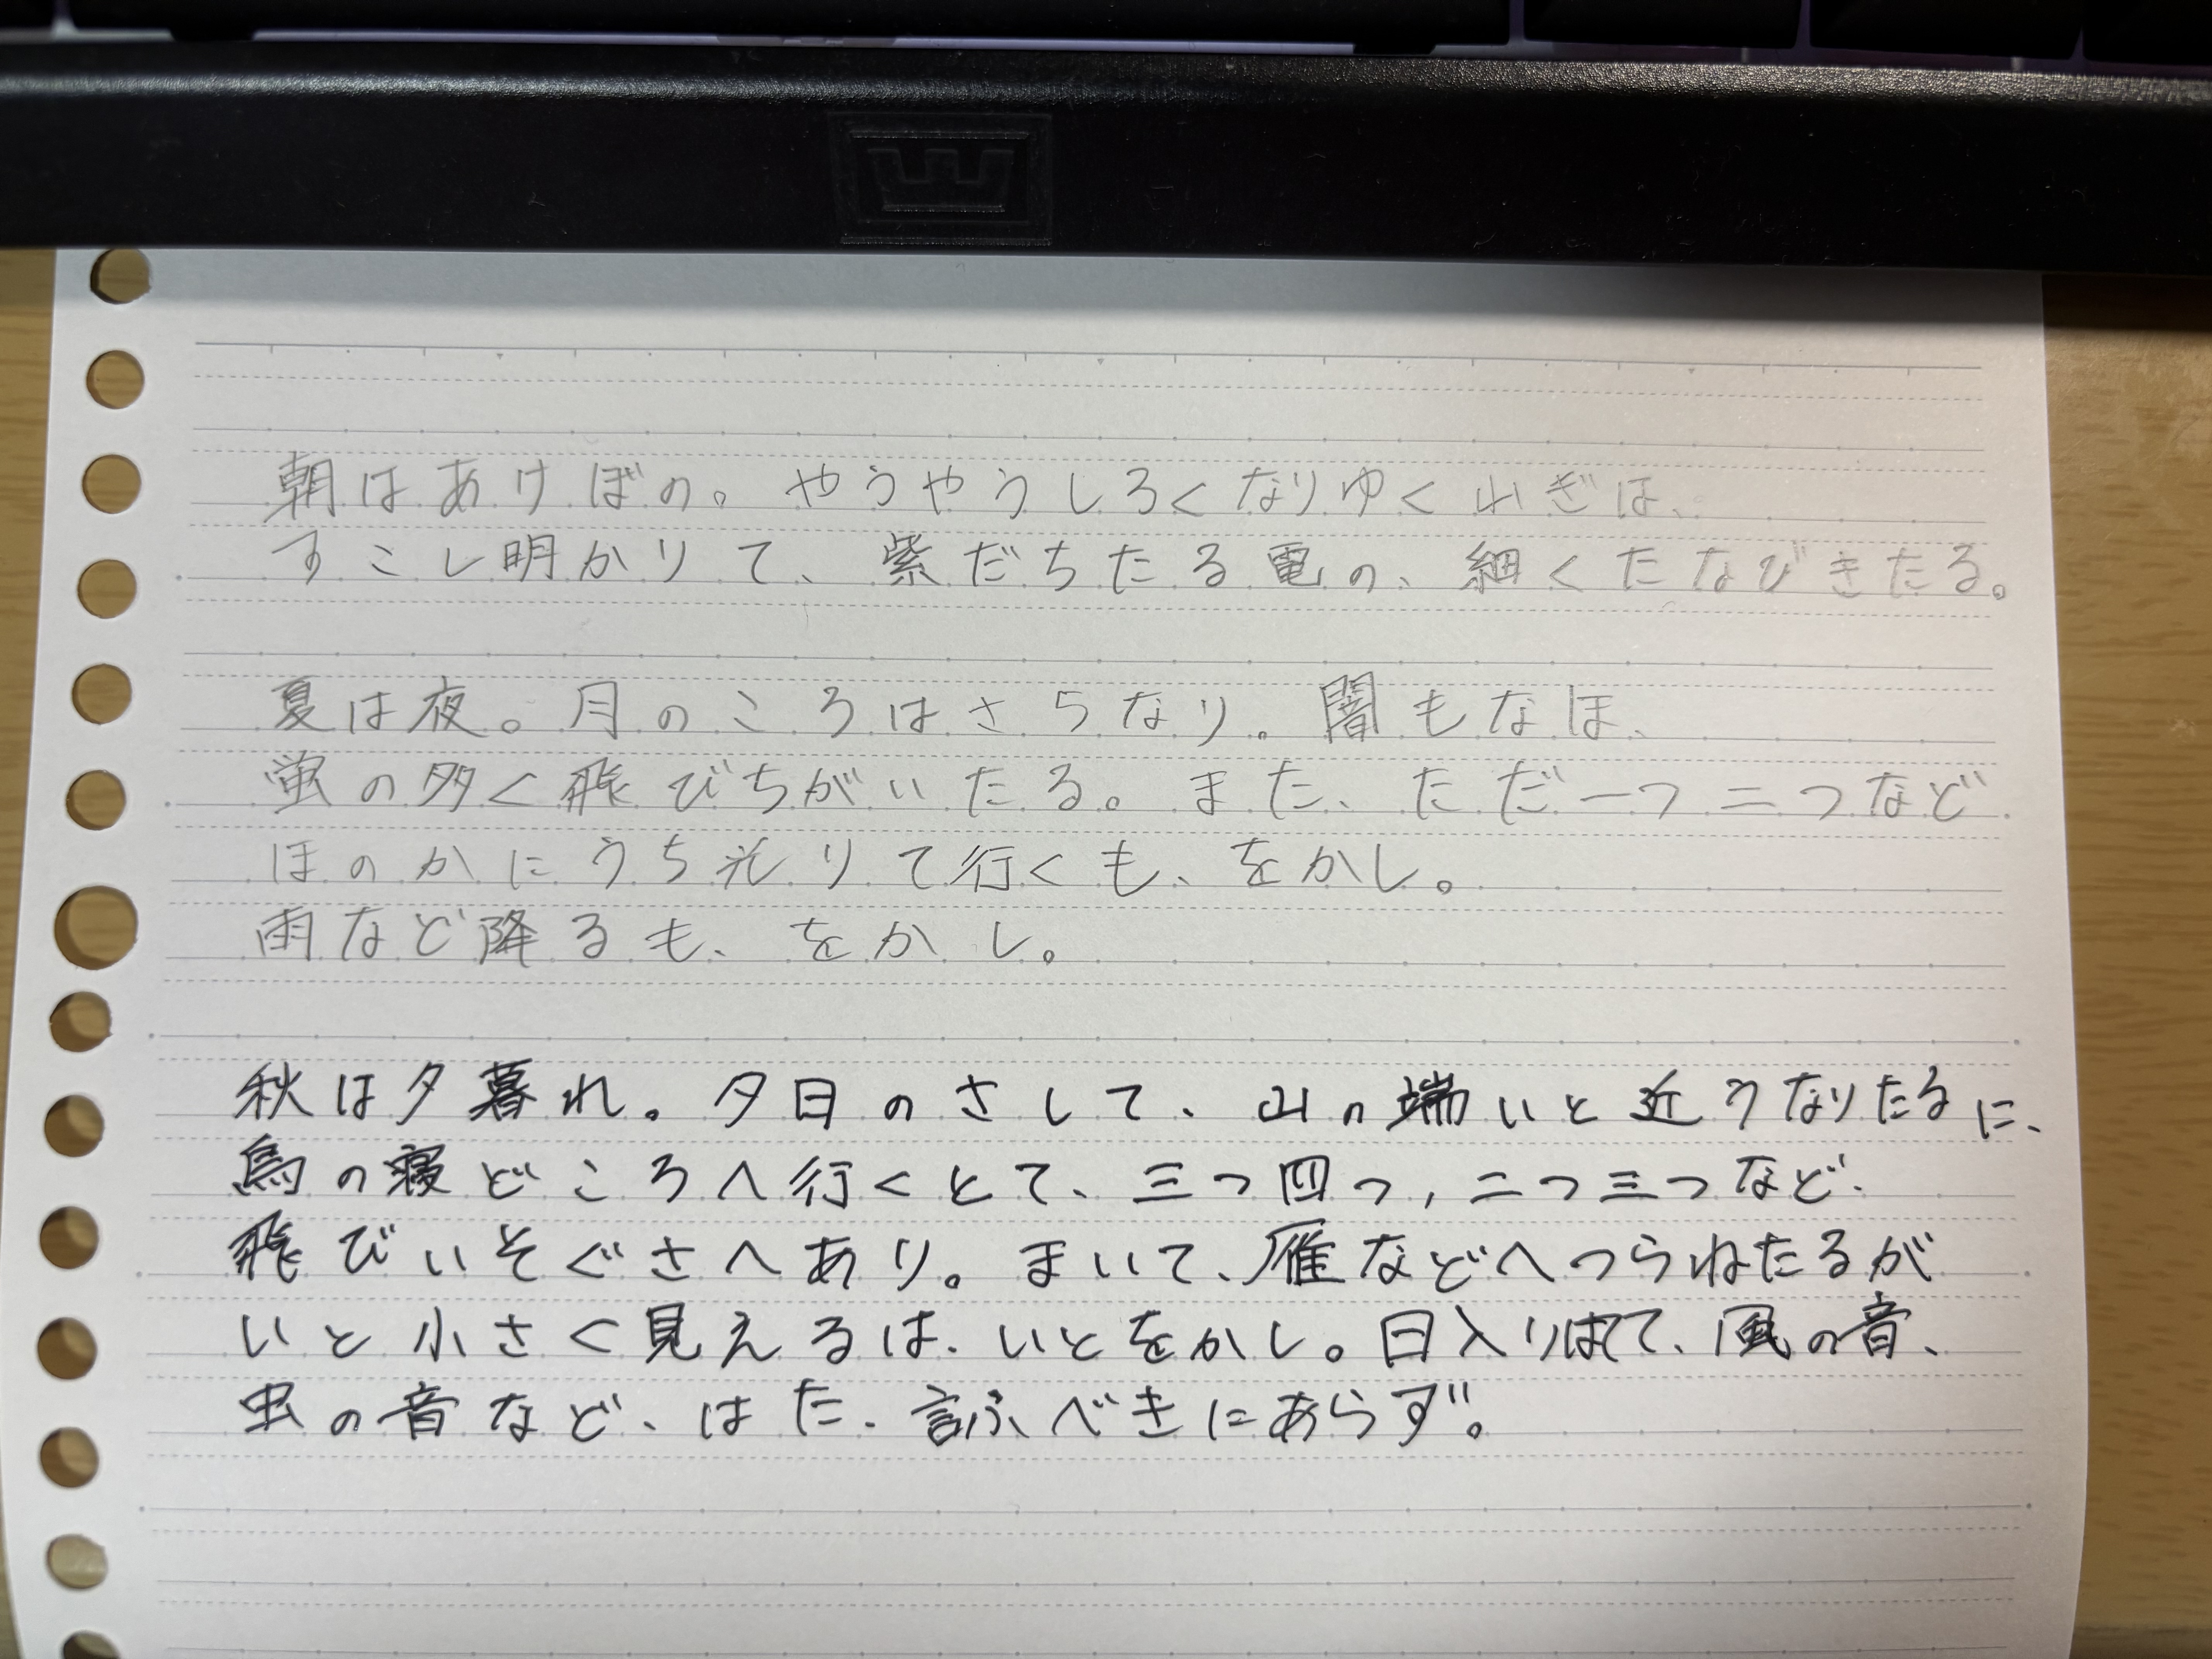 朝はあけぼの。やうやうしろくなりゆく山ぎは、
すこし明かりて、紫だちたる電の、細くたなびきたる。
夏は夜。月のころはさらなり。闇もなほ、
蛍の多く飛びちがいたる。また、ただ一つ二つなど
ほのかにうち光りて行くも、をかし。
雨など降るも、をかし。
秋は夕暮れ。夕日のさして、山の端いと近うなりたるに、
烏の寝どころへ行くとて、三つ四つ,二つ三つなど、
飛びいそぐさへあり。まいて、雁などへつらねたるが
いと小さく見えるは、いとをかし。日入りはてて、風の音、
虫の音など、はた、言ふべきにあらず。